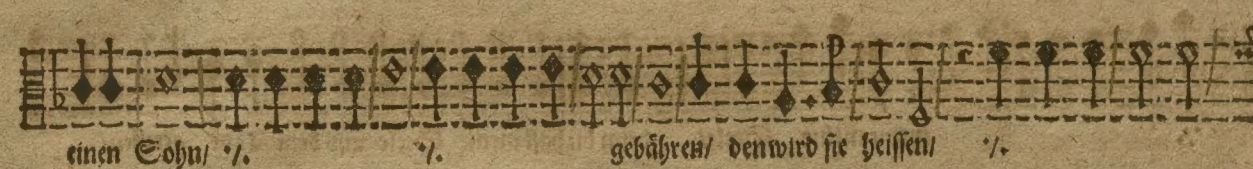 einen Sohn/ ·/. ·/. gebähren/ den wird sie heissen/ ·/.